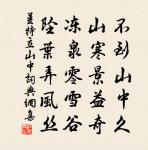 不到山中久
山寒景益奇
冻泉零雪谷
坠叶弄风丝
姜特立山中詞典網集